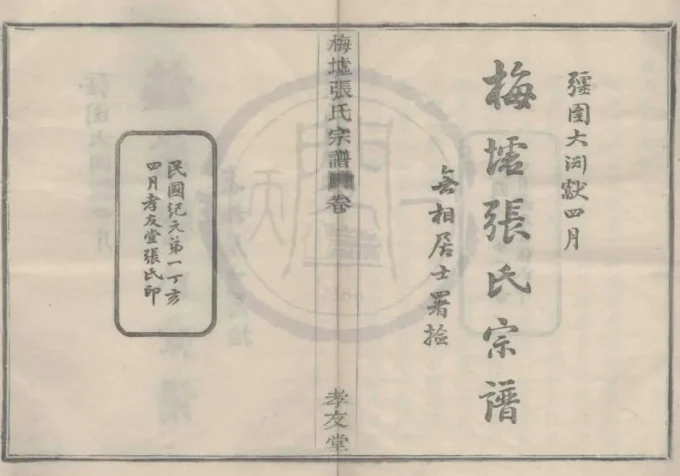 彊圉大渊献四月
梅墟張氏宗譜
無相居士署檢
梅墟張氏宗譜 卷
孝友堂
民國紀元第一丁亥
四月孝友堂張氏印